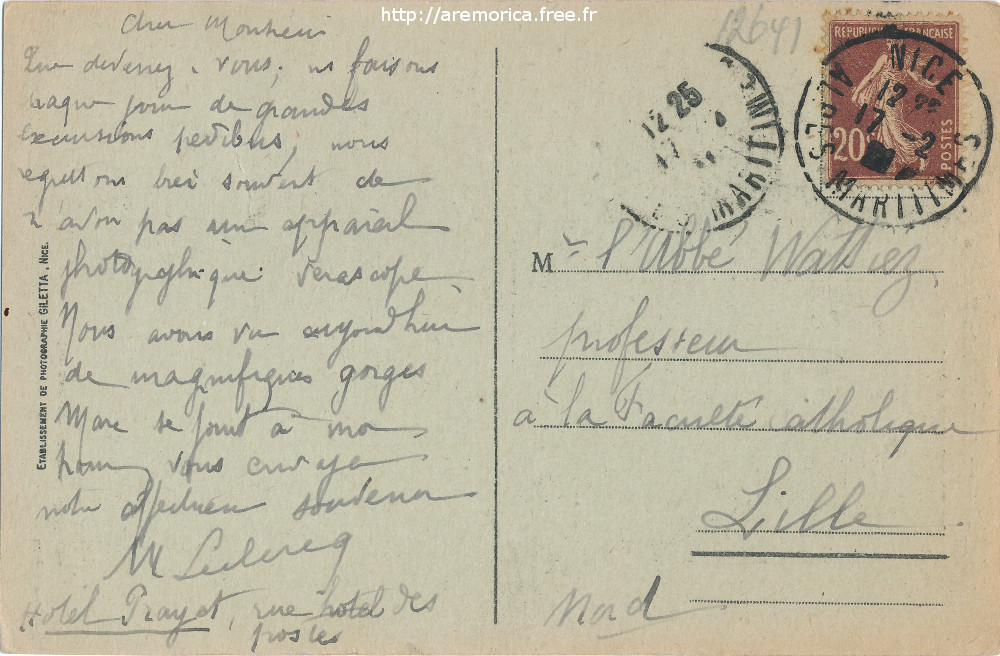 http://aremorica.free.fr
12641
Cher Monsieur
Que devenez-vous; ns faisons
chaque jour de grandes
excursions pedibus, nous
regrettons bien souvent de
n'avoir pas un appareil
photographique verascope
Nous avons vu aujourd'hui
de magnifiques gorges
Marc se joint à moi
pour vous envoyer
notre affectueux souvenir
M Leclercq
Hotel Trayet, rue hotel des
postes
ETABLISSEMENT DE PHOTOGRAPHIE GILETTA, NICE.
12 25
17
MARITIMES
REPUBLIQUE FRANÇAISE
20c
POSTES
NICE
12 25
17 -2
ALPES MARITIMES
Mr l'Abbé Wattiez,
professeur
à la Faculté catholique
Lille
Nord